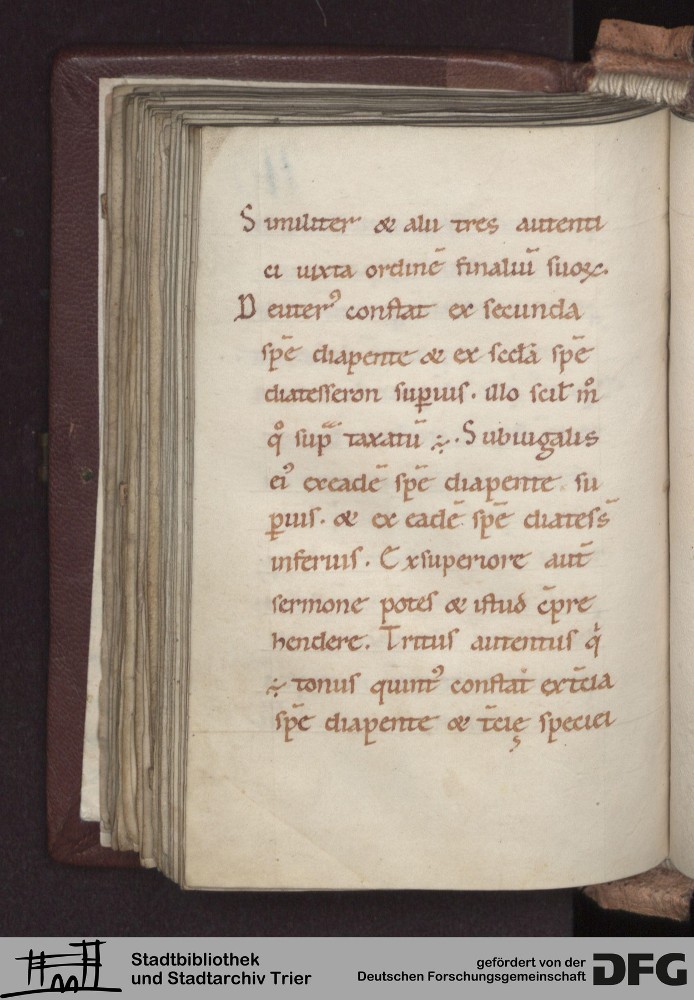 Similiter & alii tres autenti
ci iuxta ordinē finaliū suoꝝ.
Deuterꝰ constat ex secunda
spē diapente & ex scd̄a spē
diatesseron supͥus. illo scil̄ m̊
q̊ sup̄ taxatū ÷. Subiugalis
eiꝰ ex eadē spē diapente su
ꝑius. & ex eadē spē diatess̄
inferius. Ex superiore aut̄
sermone potes & istud c̄pre
hendere. Tritus autentus qͥ
÷ tonus quintꝰ constat ex t̄cia
spē diapente & t̄cię speciei
Stadtbibliothek
und Stadtarchiv Trier
gefördert von der
Deutschen Forschungsgemeinschaft
DFG